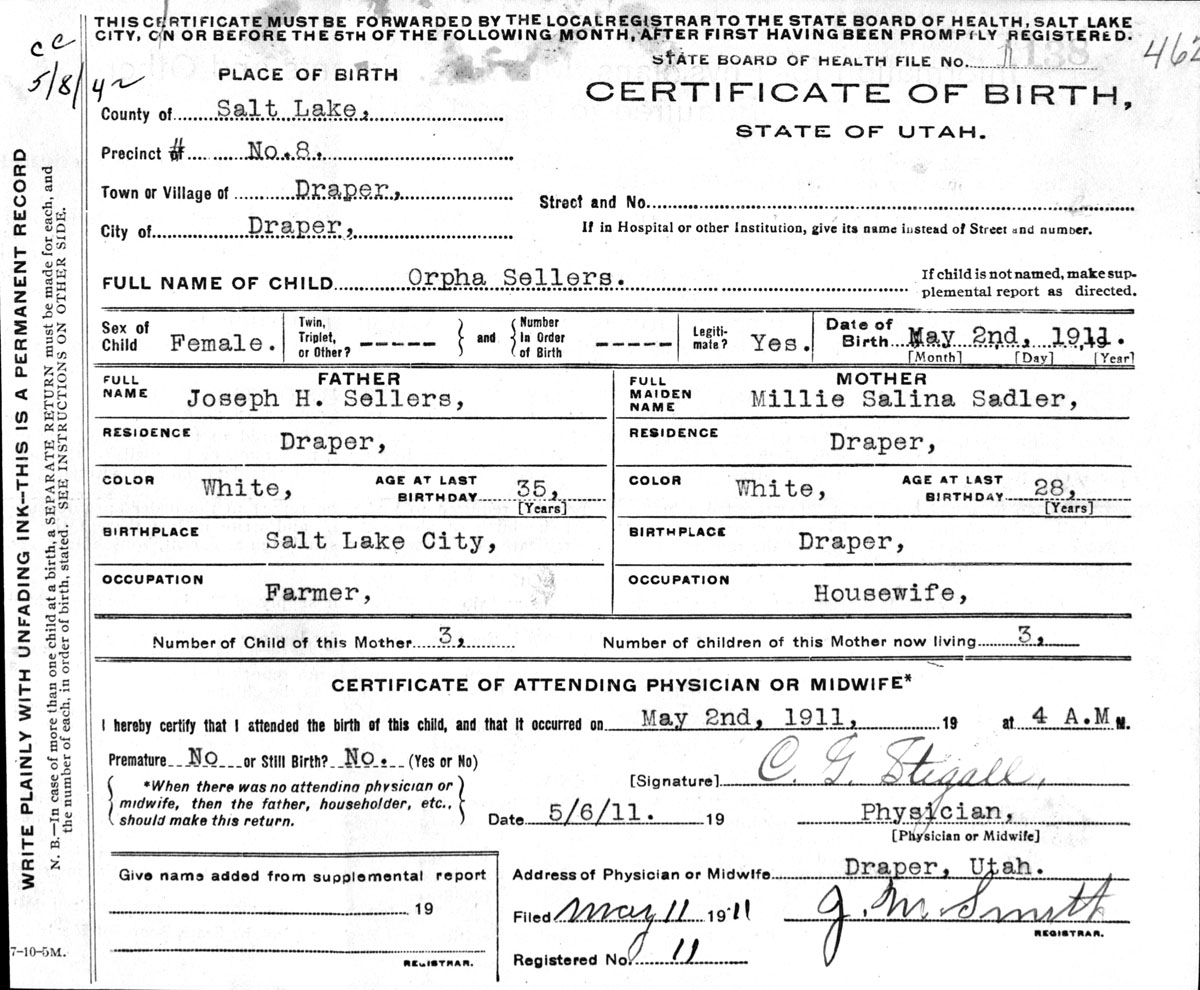 THIS CERTIFICATE MUST BE FORWARDED BY THE LOCAL REGISTRAR TO THE STATE BOARD OF HEALTH, SALT LAKE
CITY, ON OR BEFORE THE 5TH OF THE FOLLOWING MONTH, AFTER FIRST HAVING BEEN PROMPTLY REGISTERED.
cc
5/8/42
STATE BOARD OF HEALTH FILE NO. 1138
462
PLACE OF BIRTH
CERTIFICATE OF BIRTH,
STATE OF UTAH.
County of Salt Lake,
Precinct # No.8.
Town or Village of Draper,
Street and No.
City of Draper,
If in Hospital or other Institution, give its name instead of Street and number.
FULL NAME OF CHILD Orpha Sellers.
If child is not named, make sup-
plemental report as directed.
Sex of Child Female.
Twin, Triplet, or Other? -----
and
Number In Order of Birth -----
Legiti-mate? Yes.
Date of Birth May 2nd, 1911.
[Month] [Day] [Year]
FATHER
FULL NAME Joseph H. Sellers,
MOTHER
FULL MAIDEN NAME Millie Salina Sadler,
RESIDENCE Draper,
RESIDENCE Draper,
COLOR White, AGE AT LAST BIRTHDAY 35, [Years]
COLOR White, AGE AT LAST BIRTHDAY 28, [Years]
BIRTHPLACE Salt Lake City,
BIRTHPLACE Draper,
OCCUPATION Farmer,
OCCUPATION Housewife,
Number of Child of this Mother 3, Number of children of this Mother now living 3,
CERTIFICATE OF ATTENDING PHYSICIAN OR MIDWIFE*
I hereby certify that I attended the birth of this child, and that it occurred on May 2nd, 1911, 19 at 4 A.M M.
Premature No or Still Birth? No. (Yes or No)
*When there was no attending physician or
midwife, then the father, householder, etc.,
should make this return.
[Signature] C. G. Stegall,
Date 5/6/11. 19 Physician,
[Physician or Midwife]
Give name added from supplemental report
19
REGISTRAR.
Address of Physician or Midwife Draper, Utah.
Filed May 11 1911 J. M. Smith
REGISTRAR.
Registered No. 11
7-10-5M.
WRITE PLAINLY WITH UNFADING INK—THIS IS A PERMANENT RECORD
N. B.—In case of more than one child at a birth, a SEPARATE RETURN must be made for each, and
the number of each, in order of birth, stated. SEE INSTRUCTIONS ON OTHER SIDE.